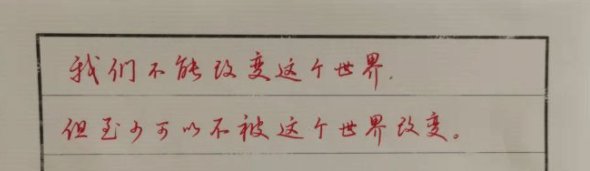 我们不能改变这个世界.
但至少可以不被这个世界改变。